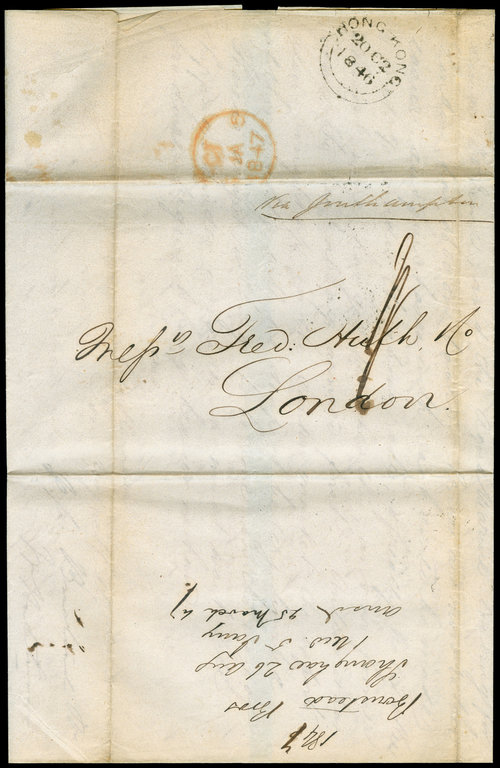 HONG KONG
20 OC
1846
8
JA
1847
Via Southampton
Mess.rs Fred. Huth & Co
London.
1847
Boustead Bros
Shanghae 26 Aug
Rec.d 5 Jany
ans.d 25 March 47